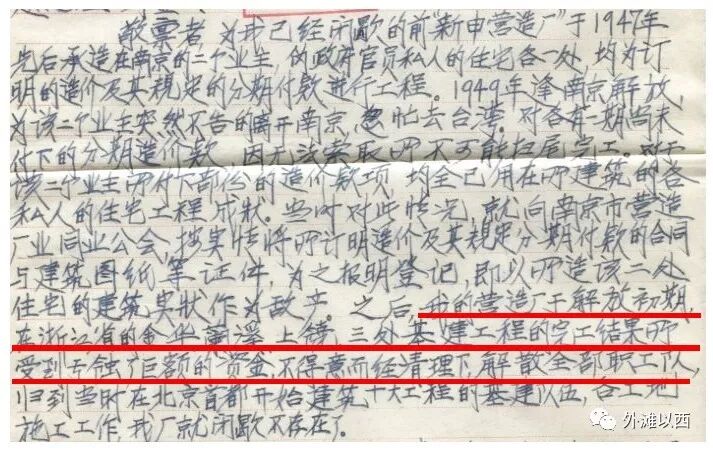 敬禀者 为我已经闭歇的前"新申营造厂"于1947年
先后承造在南京的二个业主,的政府官员私人的住宅各一处,均为订
明的造价及其规定的分期付款进行工程。1949年逢南京解放,
为该二个业主突然不告的离开南京,忽忙去台湾。对各有一期尚未
付下的分期造价款,因无法索取而不可能扫尾完工。对于
该二个业主所付下部份的造价款项,均全已用在所建筑的各
私人的住宅工程成状。当时对此情况,就向南京市营造
厂业同业公会,按实情将所订明造价及其规定分期付款的合同
与建筑图纸等证件,为之报明登记,即以所造该二处
住宅的建筑实状作为敌产。之后,我的营造厂于解放初期,
在浙江省的金华 兰溪 上饶,三处基建工程的完工结果所
受到亏蚀了巨额的资金,不得意而经清理下,解散全部职工队,
归到当时在北京首都开始建筑十大工程的基建队伍,各工地
施工工作,我厂就闭歇不存在了。
外滩以西